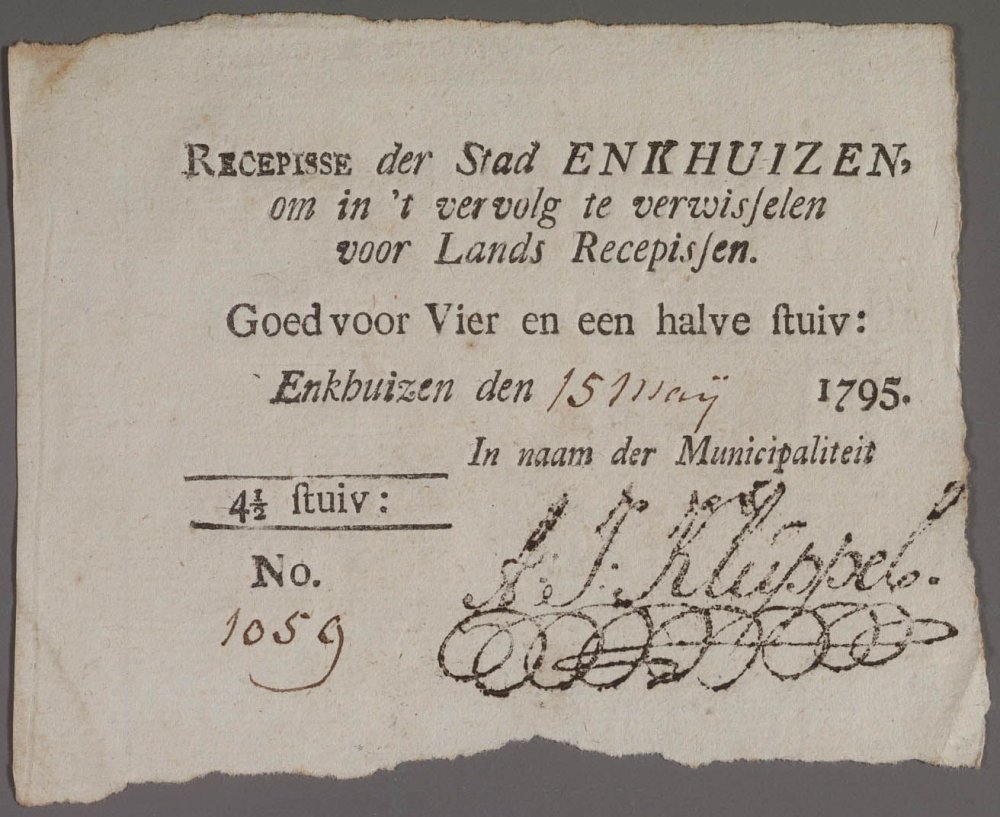 RECEPISSE der Stad ENKHUIZEN,
om in 't vervolg te verwisſelen
voor Lands Recepisſen.
Goed voor Vier en een halve ſtuiv:
Enkhuizen den 15 Maÿ 1795.
In naam der Municipaliteit
4½ ſtuiv:
A: J: Kluppel.
No.
1059